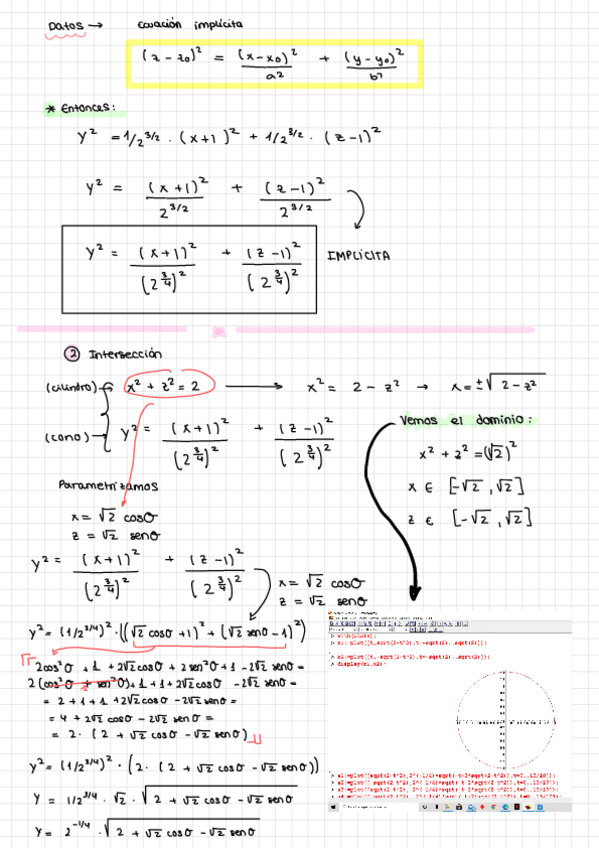 Datos → Ecuación implícita
(z - z0)² = (x-x0)²/a² + (y-y0)²/b²
* Entonces:
y² = 1/2^3/2 · (x+1)² + 1/2^3/2 · (z-1)²
y² = (x+1)²/2^3/2 + (z-1)²/2^3/2
y² = (x+1)²/(2^3/4)² + (z-1)²/(2^3/4)² IMPLÍCITA
② Intersección
(cilindro) → x² + z² = 2 → x² = 2 - z² → x = ±√2-z²
(cono) → y² = (x+1)²/(2^3/4)² + (z-1)²/(2^3/4)²
Vemos el dominio:
x² + z² = (√2)²
x ∈ [-√2, √2]
z ∈ [-√2, √2]
Parametrizamos
x = √2 cosθ
z = √2 senθ
y² = (x+1)²/(2^3/4)² + (z-1)²/(2^3/4)²
x = √2 cosθ
z = √2 senθ
y² = (1/2^3/4)² · ((√2 cosθ +1)² + (√2 senθ -1)²)
2cos²θ + 1 + 2√2 cosθ + 2sen²θ + 1 - 2√2 senθ =
2(cos²θ + sen²θ) + 1 + 1 + 2√2 cosθ - 2√2 senθ =
= 2 + 1 + 1 + 2√2 cosθ - 2√2 senθ =
= 4 + 2√2 cosθ - 2√2 senθ =
= 2 · (2 + √2 cosθ - √2 senθ)
y² = (1/2^3/4)² · (2 · (2 + √2 cosθ - √2 senθ))
y = 1/2^3/4 · √2 · √2 + √2 cosθ - √2 senθ
y = 2^-1/4 · √2 + √2 cosθ - √2 senθ